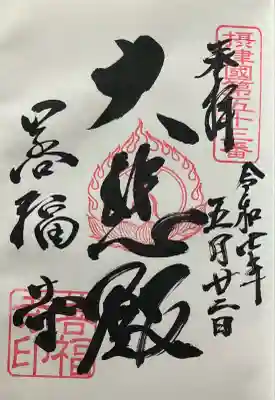 摂津國第五十三番
奉拝
令和七年
五月廿二日
大悲殿
善福寺
善福寺印